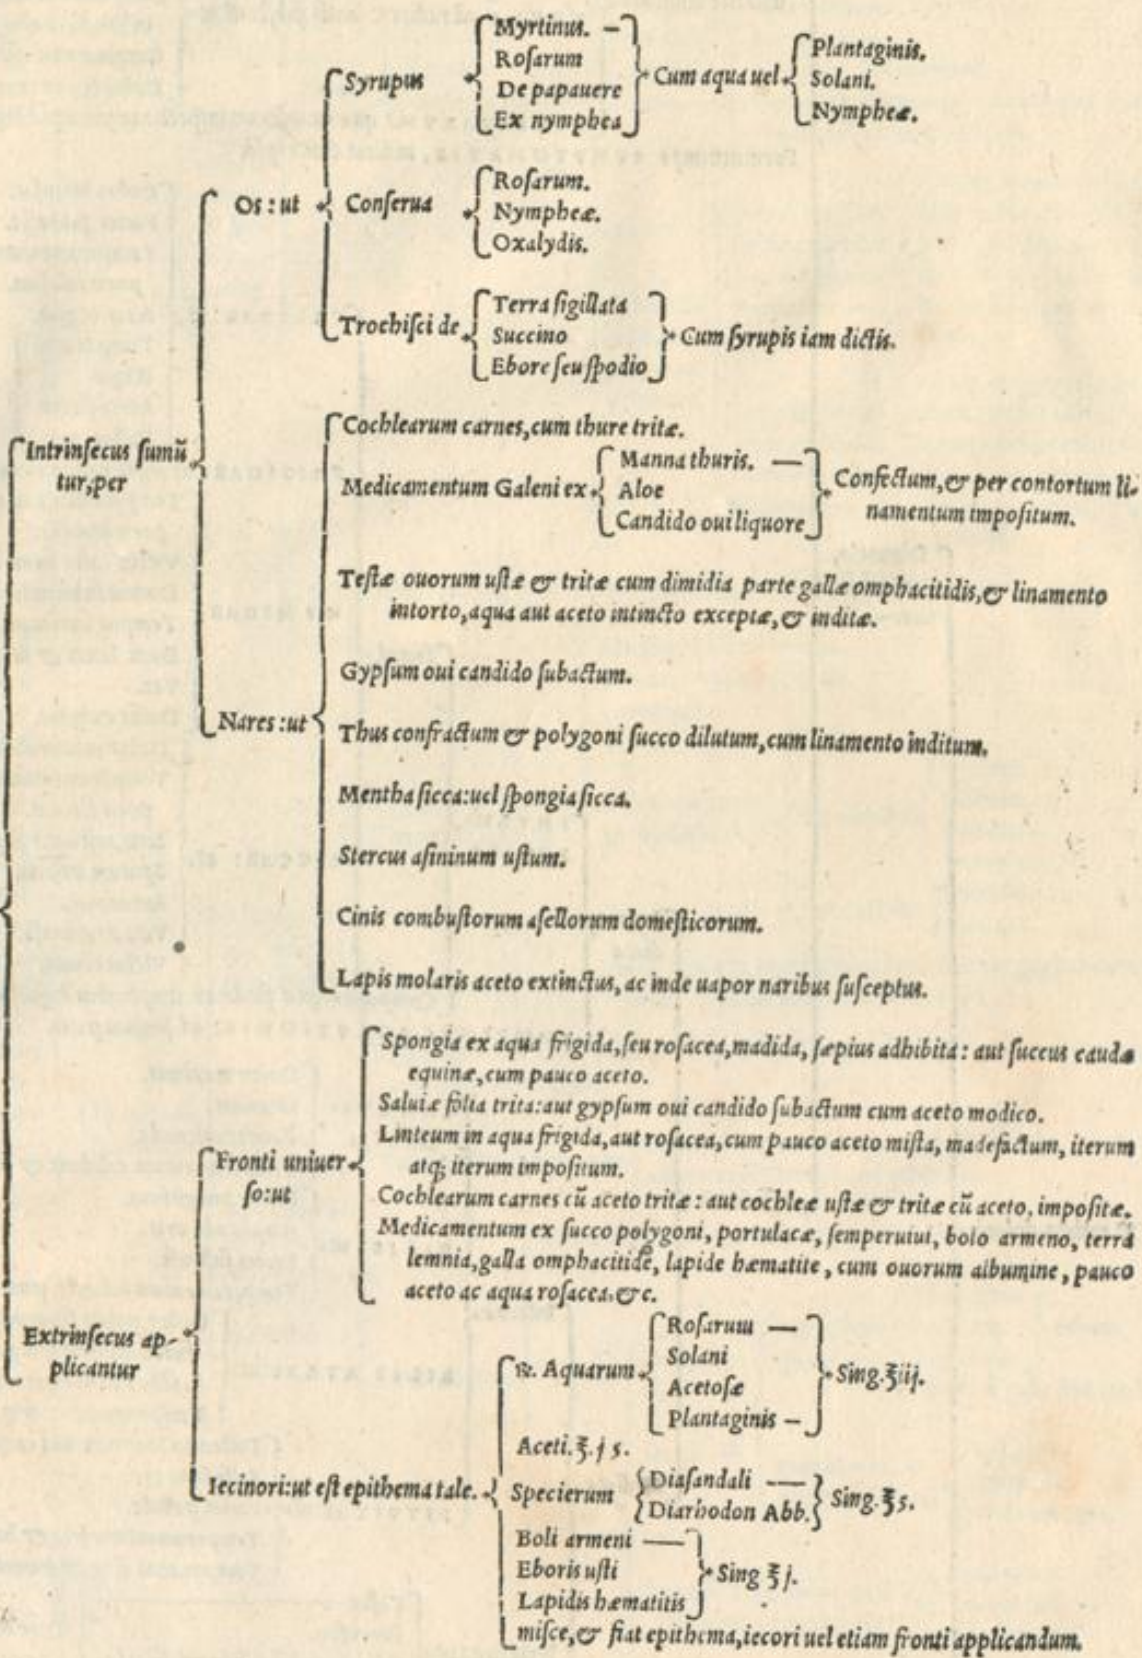 Myrtinus.
Roſarum
De papauere
Ex nymphea
Syrupus
Cum aqua uel
Plantaginis.
Solani.
Nympheæ.
Os : ut
Conſerua
Roſarum.
Nympheæ.
Oxalydis.
Trochiſci de
Terra ſigillata
Succino
Ebore ſeu ſpodio
Cum ſyrupis iam dictis.
Intrinſecus ſumũ
tur, per
Cochlearum carnes, cum thure tritæ.
Medicamentum Galeni ex
Manna thuris.
Aloe
Candido oui liquore
Confectum, & per contortum li-
namentum impoſitum.
Teſtæ ouorum uſtæ & tritæ cum dimidia parte gallæ omphacitidis, & linamento
intorto, aqua aut aceto intincto exceptæ, & inditæ.
Gypſum oui candido ſubactum.
Nares : ut
Thus confractum & polygoni ſucco dilutum, cum linamento inditum.
Mentha ſicca: uel ſpongia ſicca.
Stercus aſininum uſtum.
Cinis combuſtorum aſellorum domeſticorum.
Lapis molaris aceto extinctus, ac inde uapor naribus ſuſceptus.
Spongia ex aqua frigida, ſeu roſacea, madida, ſæpius adhibita : aut ſuccus caudæ
equinæ, cum pauco aceto.
Saluiæ folia trita: aut gypſum oui candido ſubactum cum aceto modico.
Linteum in aqua frigida, aut roſacea, cum pauco aceto miſta, madefactum, iterum
atq; iterum impoſitum.
Fronti uniuer
ſo: ut
Cochlearum carnes cũ aceto tritæ : aut cochleæ uſtæ & tritæ cũ aceto, impoſitæ.
Medicamentum ex ſucco polygoni, portulacæ, ſemperuiui, bolo armeno, terra
lemnia, galla omphacitide, lapide hæmatite, cum ouorum albumine, pauco
aceto ac aqua roſacea. &c.
Extrinſecus ap-
plicantur
℞. Aquarum
Roſarum
Solani
Acetoſæ
Plantaginis
Sing. ℥iij.
Aceti. ℥. j s.
Iecinori: ut eſt epithema tale.
Specierum
Diaſandali
Diarhodon Abb.
Sing. ℥ s.
Boli armeni
Eboris uſti
Lapidis hæmatitis
Sing ℥ j.
miſce, & fiat epithema, iecori uel etiam fronti applicandum.